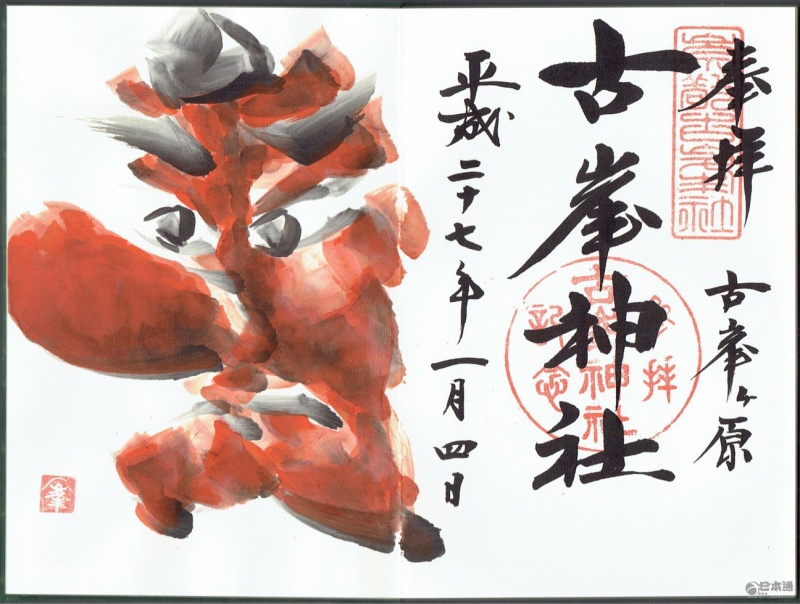 奉拝
古峯ヶ原
古峯神社
参拝
古峯神社
記念
平成二十七年一月四日
日本通